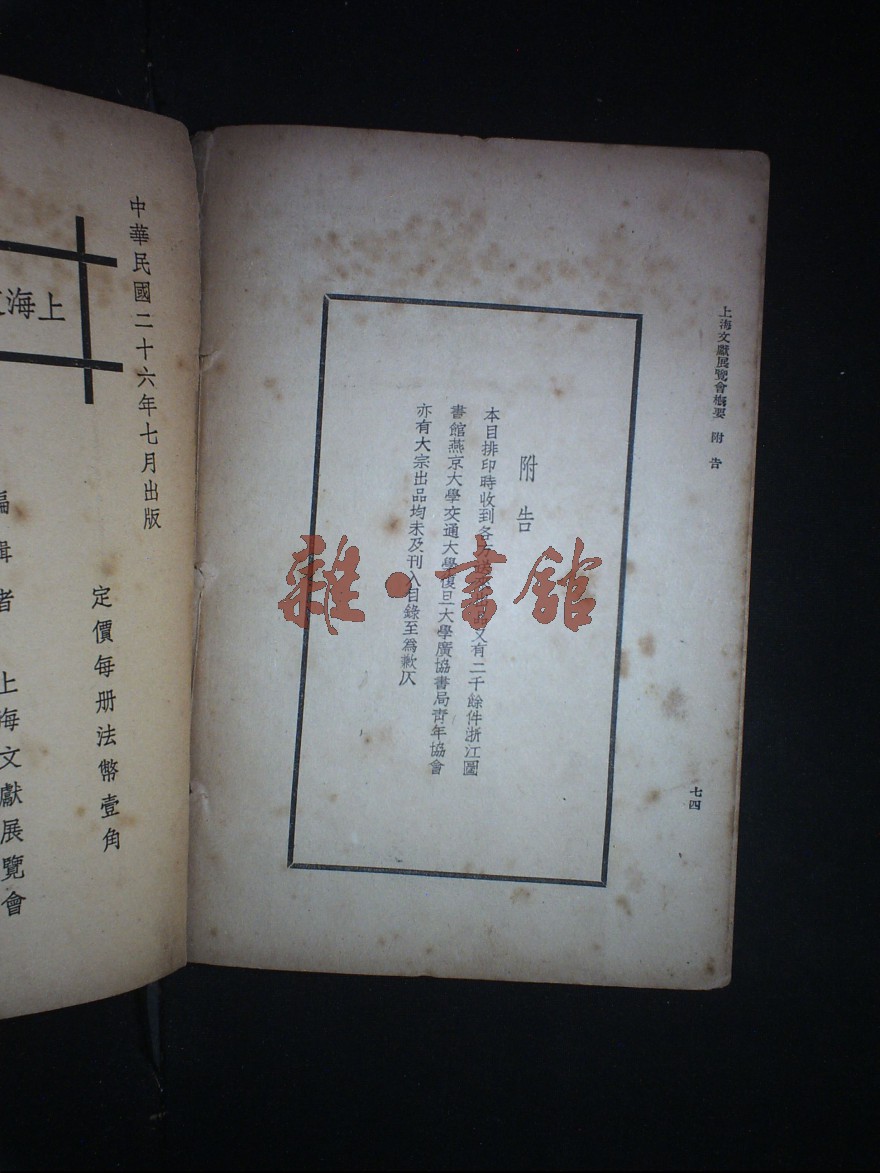 上海文獻展覽會概要 附告
七四
附告
本目排印時收到各方送來出品又有二千餘件浙江圖
書館燕京大學交通大學復旦大學廣協書局青年協會
亦有大宗出品均未及刊入目錄至爲歉仄
雜·書館
中華民國二十六年七月出版
定價每册法幣壹角
上海
編輯者 上海文獻展覽會